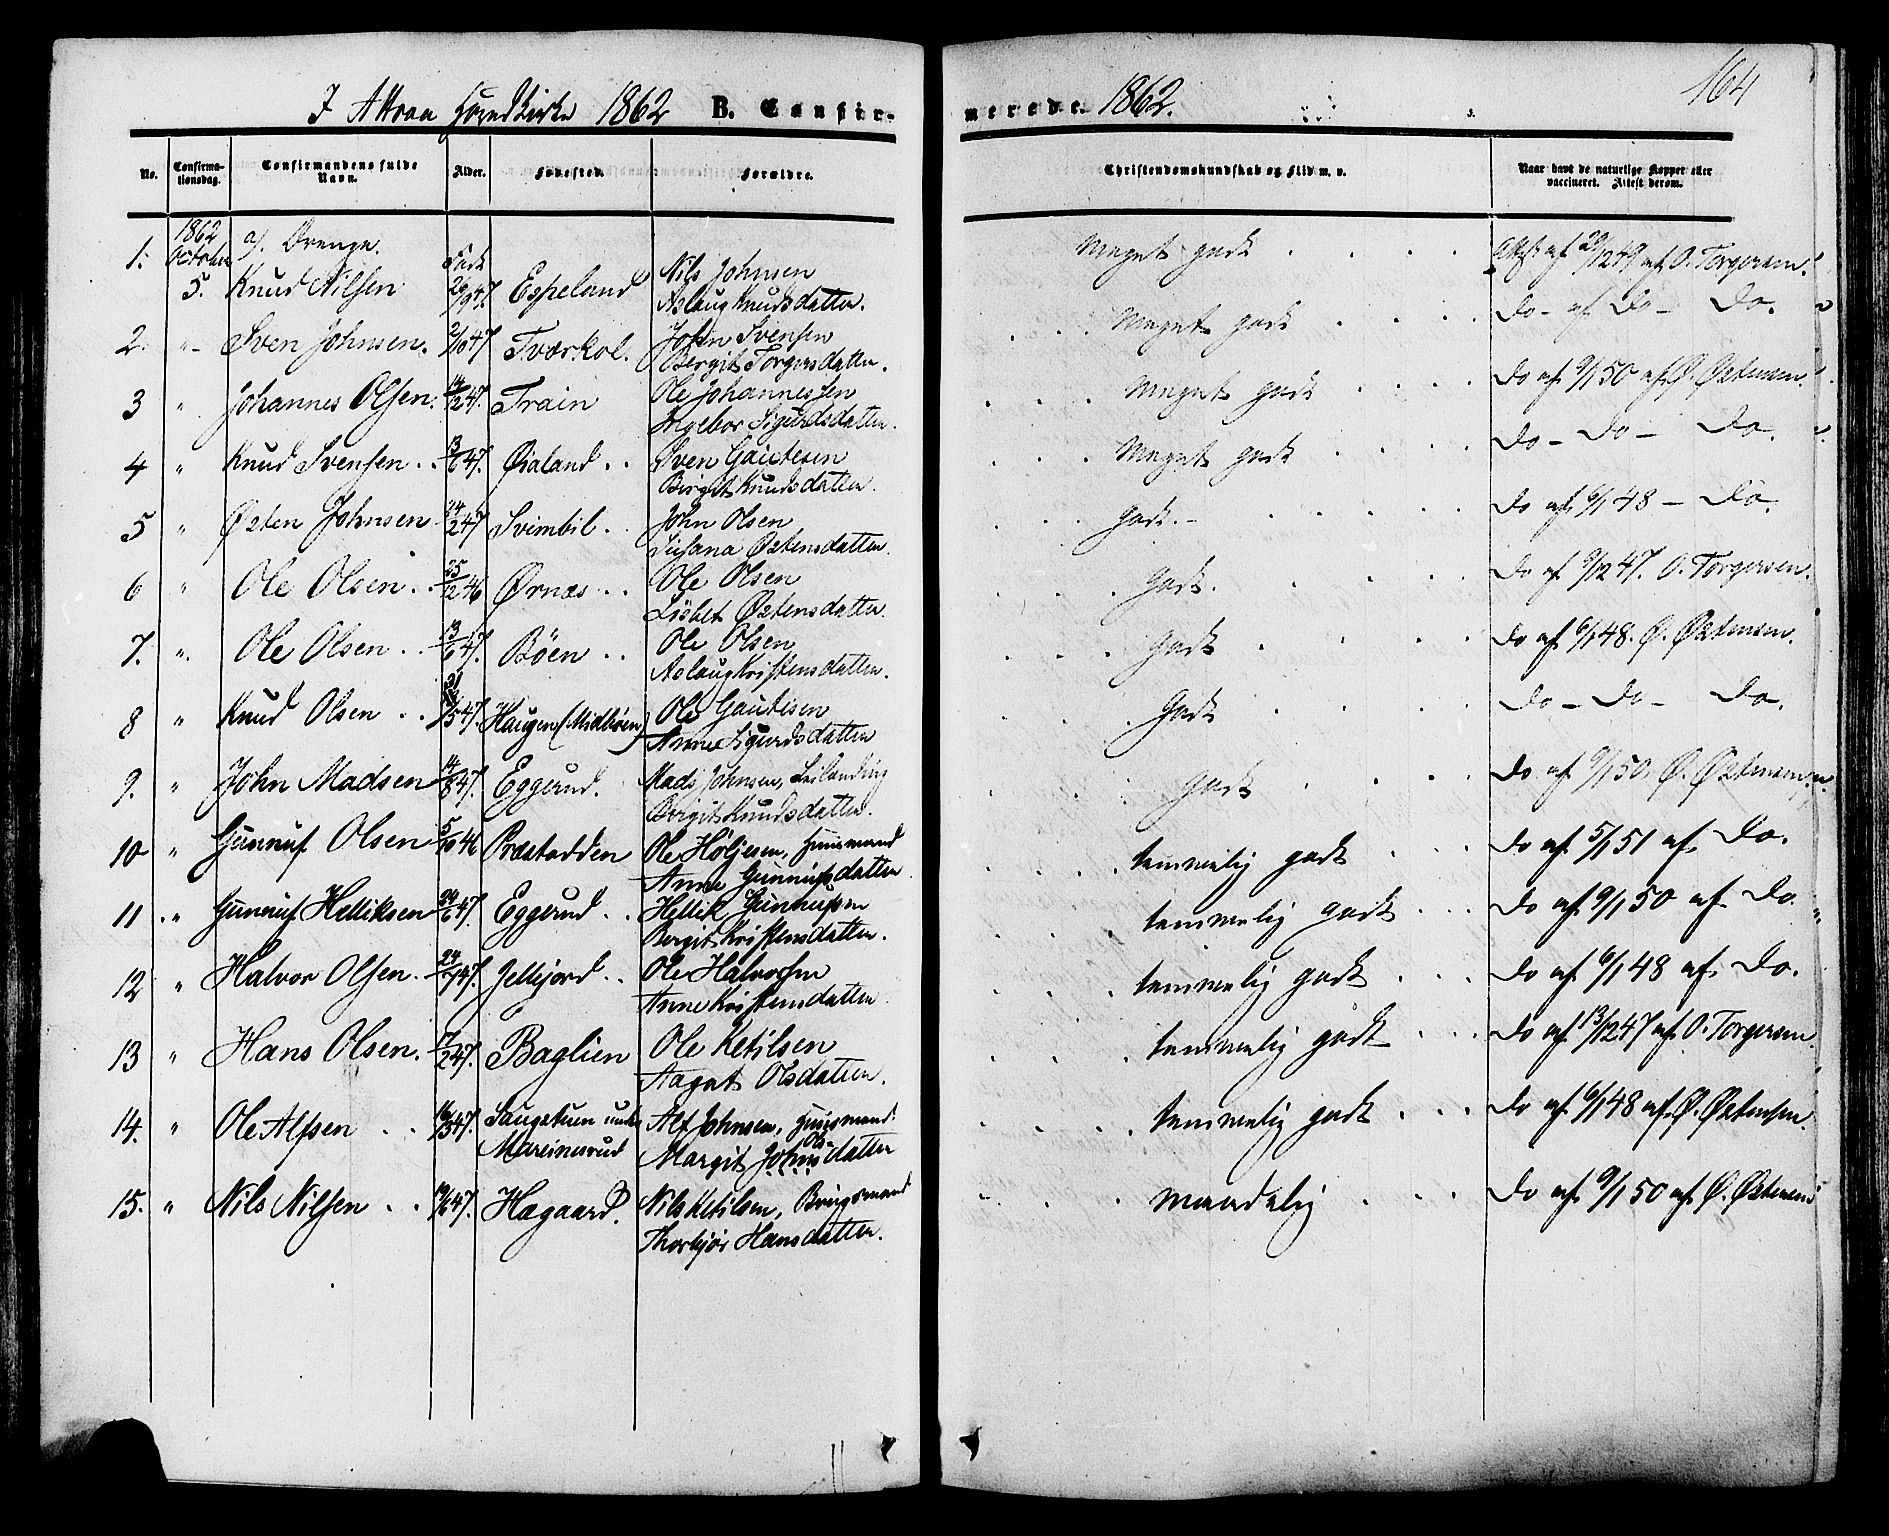 I Attraa Hovedkirke 1862 B. Confir-
merede. 1862.
164
No. Confirma-tionsdag. Confirmandens fulde Navn. Alder. Fødested. Forældre. Christendomskundskab og Flid m. v. Naar havt de naturlige Kopper eller vaccineret. Attest derom.
1862 a/. Drenge.
1. October 5. Knud Nilsen født 20/9 47. Espeland Nils Johnsen Aslaug Knudsdatter. Meget godt Attest af 29/12 49 af O. Torgersen.
2. " Sven Johnsen. 2/10 47 Tværkol. John Svensen Bergit Torgersdatter. Meget godt Do - af Do - Do.
3 " Johannes Olsen. 14/12 47. Train Ole Johannessen Ingebor Sigurdsdatter. Meget godt Do af 9/1 50 af Ø. Østensen.
4 " Knud Svensen 13/6 47. Øialand Sven Gautesen Birgit Knudsdatter. Meget godt Do - Do - Do.
5 " Østen Johnsen 24/2 47 Svimbil John Olsen Susana Østensdatter. Godt. Do af 6/1 48 - Do.
6 " Ole Olsen 25/12 46 Ørnæs Ole Olsen Lisbet Østensdatter. Godt. Do af 9/12 47. O. Torgersen.
7. " Ole Olsen 13/6 47. Böen Ole Olsen Aslaug Kristensdatter. Godt Do af 6/1 48. Ø. Østensen.
8 " Knud Olsen /5 47. Haugen (Midböen) Ole Gautesen Anne Sigurdsdatter Godt Do - Do - Do.
9. " John Madsen 14/8 47. Eggerud. Mads Johnsen, Birgit Knudsdatter. Godt Do af 9/1 50. Ø. Østensen.
10 " Gunnuf Olsen 5/10 46 Præstodden Ole Höljesen, Huusmand Anne Gunnufsdatter temmelig godt Do af 5/1 51 af Do.
11 " Gunnuf Helliksen 24/6 47. Eggerud Hellik Gunnufsen Bergit Kristensdatter. temmelig godt Do af 9/1 50 af Do.
12 " Halvor Olsen 47. Jellejord Ole Halvorsen Anne Kristensdatter temmelig godt Do af 6/1 48 af Do.
13 " Hans Olsen. 17/2 47. Baglien Ole Ketilsen Aagot Olsdatter. temmelig godt Do af 13/12 47 af O. Torgersen.
14. " Ole Alfsen 16/3 47. Saugstuen under Mareinesrud Alf Johnsen, Huusmand. Margit Johnsdatter Ols temmelig godt Do af 6/1 48 af Ø. Østensen.
15. " Nils Nilsen 47. Hægaard. Nils Ketilsen, Brugsmand Thorbjör Hansdatter. maadelig Do af 9/1 50 af Ø. Østensen